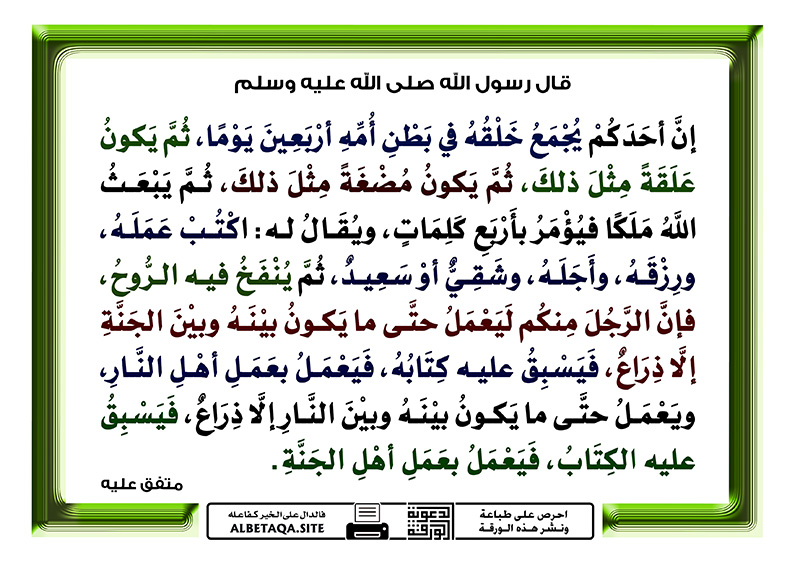 قال رسول الله صلى الله عليه وسلم
إنَّ أحَدَكُمْ يُجْمَعُ خَلْقُهُ في بَطْنِ أُمِّهِ أرْبَعِينَ يَوْمًا، ثُمَّ يَكونُ
عَلَقَةً مِثْلَ ذلكَ، ثُمَّ يَكونُ مُضْغَةً مِثْلَ ذلكَ، ثُمَّ يَبْعَثُ
اللَّهُ مَلَكًا فيُؤْمَرُ بأَرْبَعِ كَلِمَاتٍ، ويُقَالُ له: اكْتُبْ عَمَلَهُ،
ورِزْقَهُ، وأَجَلَهُ، وشَقِيٌّ أوْ سَعِيدٌ، ثُمَّ يُنْفَخُ فيه الرُّوحُ،
فإنَّ الرَّجُلَ مِنكُم لَيَعْمَلُ حتَّى ما يَكونُ بيْنَهُ وبيْنَ الجَنَّةِ
إلَّا ذِرَاعٌ، فَيَسْبِقُ عليه كِتَابُهُ، فَيَعْمَلُ بعَمَلِ أهْلِ النَّارِ،
ويَعْمَلُ حتَّى ما يَكونُ بيْنَهُ وبيْنَ النَّارِ إلَّا ذِرَاعٌ، فَيَسْبِقُ
عليه الكِتَابُ، فَيَعْمَلُ بعَمَلِ أهْلِ الجَنَّةِ.
متفق عليه
احرص على طباعة
ونشر هذه الورقة
الورقة
الدعوية
فالدال على الخير كفاعله
ALBETAQA.SITE